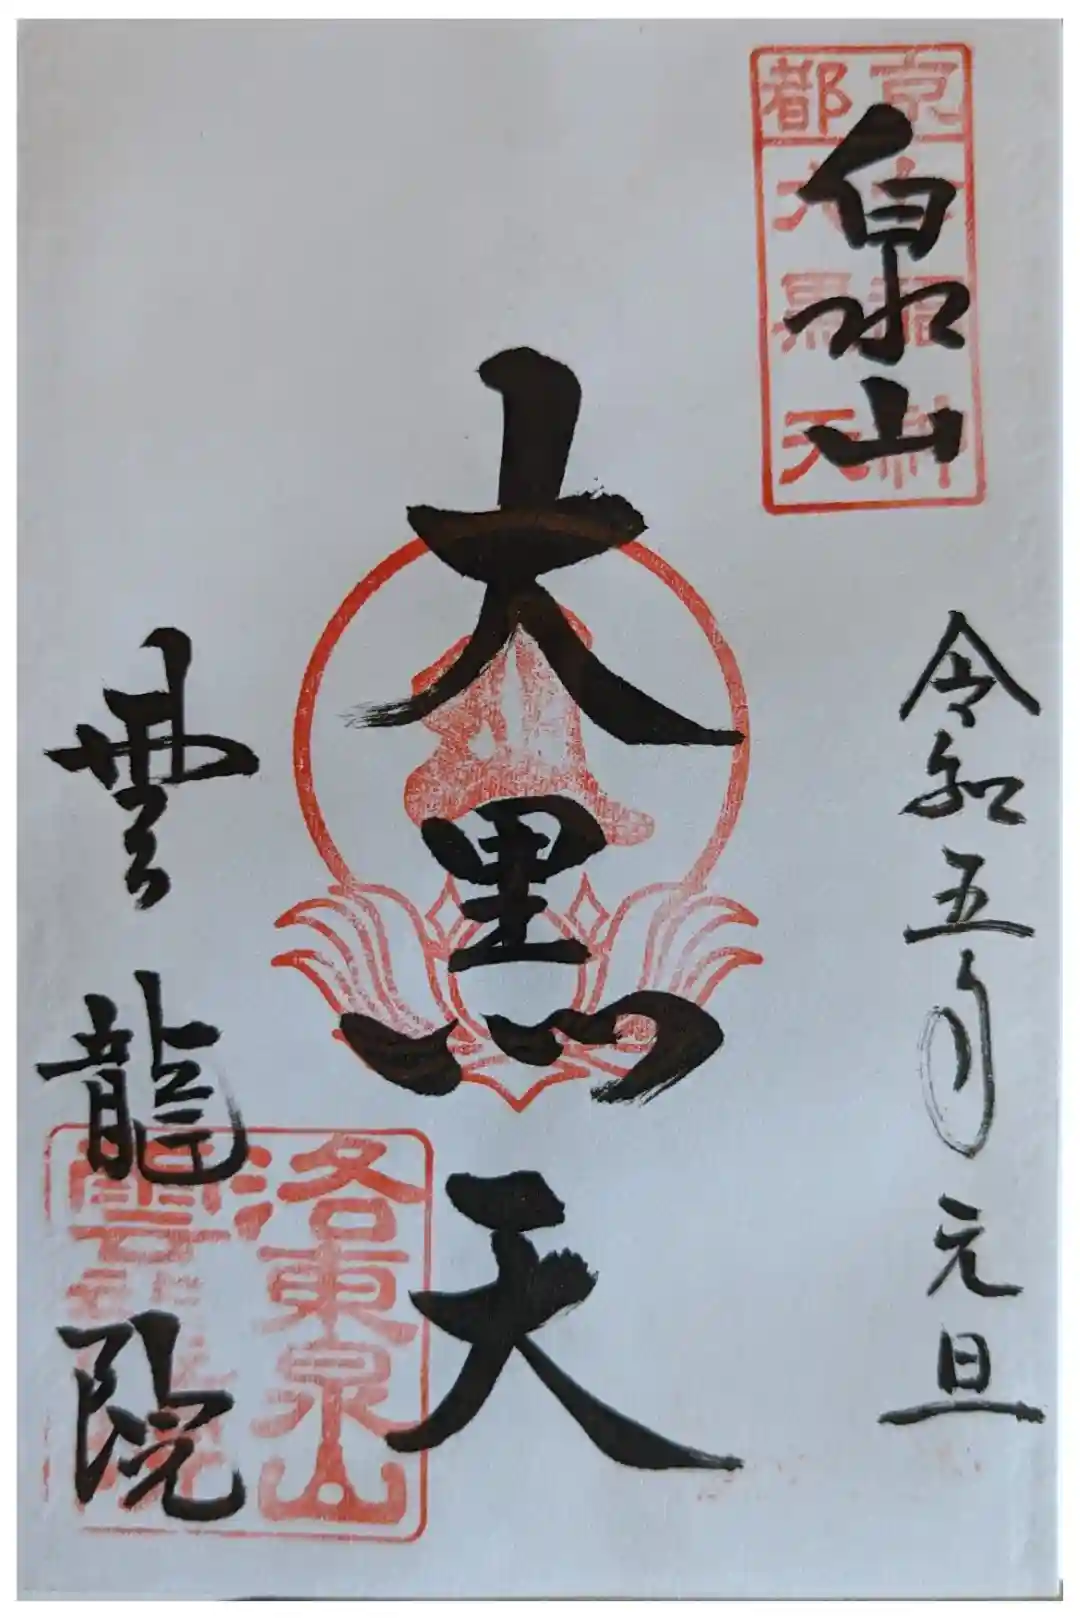 京都
大黒天
泉山
令和五年元旦
大黒天
雲龍院
洛東泉山
雲龍院